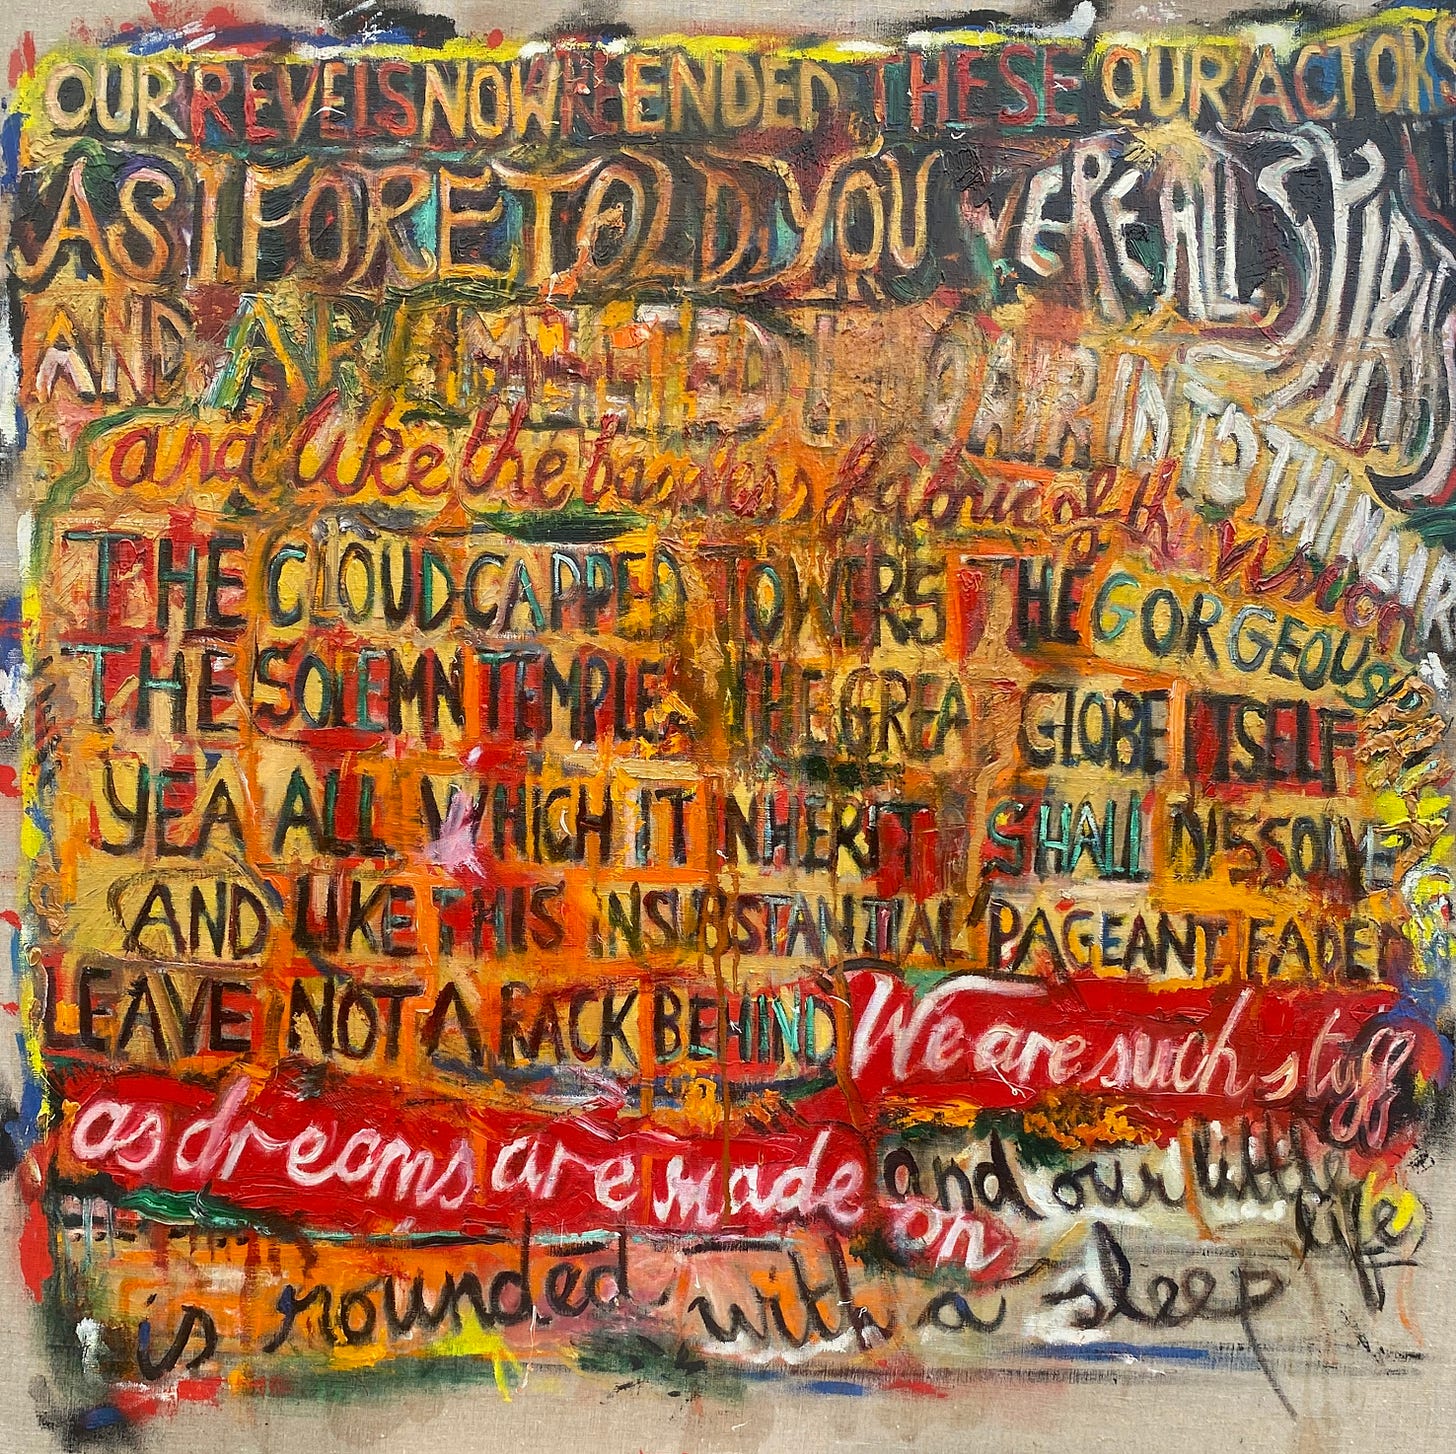 OUR REVELS NOW ARE ENDED THESE OUR ACTORS
AS I FORETOLD YOU WERE ALL SPIRITS
AND ARE MELTED INTO AIR INTO THIN AIR
and like the baseless fabric of th vision
THE CLOUD CAPPED TOWERS THE GORGEOUS
THE SOLEMN TEMPLES THE GREAT GLOBE ITSELF
YEA ALL WHICH IT INHERIT SHALL DISSOLVE
AND LIKE THIS INSUBSTANTIAL PAGEANT FADED
LEAVE NOT A RACK BEHIND We are such stuff
as dreams are made on and our little life
is rounded with a sleep